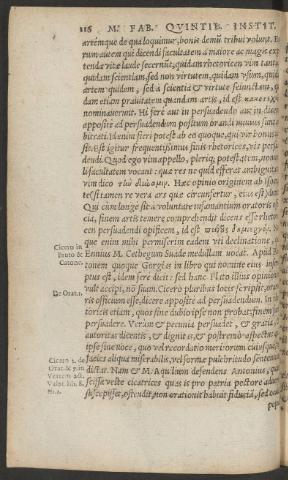 116 M. FAB. QVINTIL. INSTIT.
artemque de qua loquimur, bonis demū tribui volunt.
rum autem qui dicendi facultatem à maiore ac magis exp
tenda vitæ laude secernūt, quidam rhetoricen vim tantū
quidam scientiam, sed non virtutem, quidam vsum, qui
artem quidem, sed à scientia & virtute seiunctam, q
dam etiam prauitatem quandam artis, id est
nominauerunt. Hi ferè aut in persuadendo aut in dicen
appositè ad persuadendum positum orandi munus sunt
bitrati. Id enim fieri potest ab eo quoque, qui vir bonus
Est igitur frequentissimus finis rhetorices, vis persu
dendi. Quod ego vim appello, pleriq; potestatem, nonnu
li facultatem vocant: quæ res ne quid afferat ambiguitat
vim dico δύναμιν. Hæc opinio originem ab Isocra
Qui cùm longè sit à voluntate infamantium oratoris
cia, finem artis temerè comprehendit dicens esse rhetor
cen persuadendi opificem, id est
que enim mihi permiserim eadem vti declinatione, q
Ennius M. Cethegum Suadæ medullam vocat. Apud
tonem quoque Gorgias in libro qui nomine eius
ptus est, idem ferè dicit: sed hanc Plato illius opinionem
vult accipi, nō suam. Cicero pluribus locis scripsit, orato
ris officium esse, dicere appositè ad persuadendum. In
toricis etiam, quos sine dubio ipse non probat: finem
persuadere. Verùm & pecunia persuadet, & gratia,
autoritas dicentis, & dignitas, & postremò aspectus
ipse sine voce, quo vel recordatio meritorum cuiusque,
facies aliqua miserabilis, vel formæ pulchritudo sententiā
dictat. Nam & M. Aquilium defendens Antonius,
scissa veste cicatrices quas is pro patria pectore aduer
suscepisset, ostendit, non orationis habuit fiduciā, sed
Cicero in
Bruto &
Catone.
De Orat. 1.
Cicero 2. de
Orat. &
Verrem act.
Valer. lib. 8.